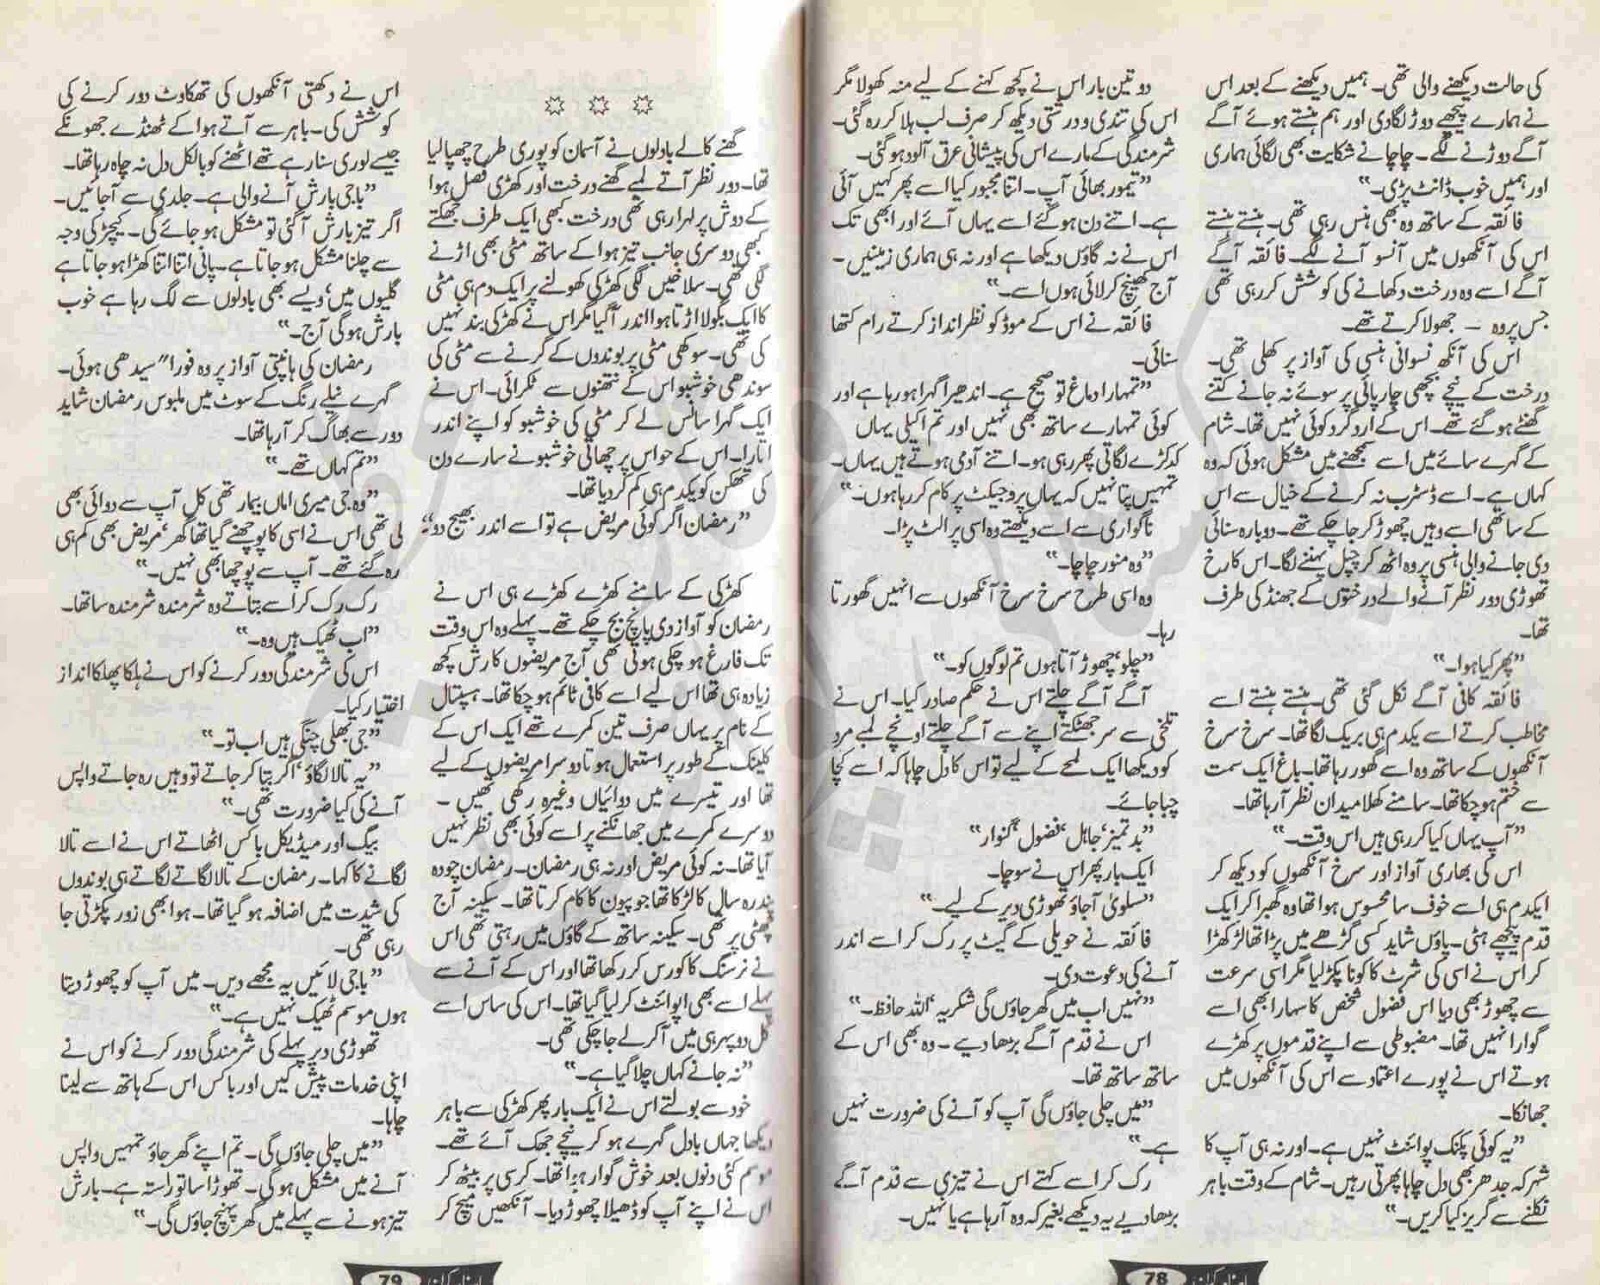 کی حالت دیکھنے والی تھی۔ ہمیں دیکھنے کے بعد اس
نے ہمارے پیچھے دوڑ لگادی اور ہم ہنستے ہوئے آگے
آگے دوڑنے لگے۔ چاچا نے شکایت بھی لگائی ہماری
اور ہمیں خوب ڈانٹ پڑی۔"
فائقہ کے ساتھ وہ بھی ہنس رہی تھی۔ ہنستے ہنستے
اس کی آنکھوں میں آنسو آنے لگے۔ فائقہ آگے
آگے اسے وہ درخت دکھانے کی کوشش کر رہی تھی
جس پر وہ – جھولا کرتے تھے۔
اس کی آنکھ نسوانی ہنسی کی آواز پر کھلی تھی۔
درخت کے نیچے بچھی چارپائی پر سوئے نہ جانے کتنے
گھنٹے ہو گئے تھے۔ اس کے ارد گرد کوئی نہیں تھا۔ شام
کے گہرے سائے میں اسے سمجھنے میں مشکل ہوئی کہ وہ
کہاں ہے۔ اسے ڈسٹرب نہ کرنے کے خیال سے اس
کے ساتھی اسے وہیں چھوڑ کر جا چکے تھے۔ دوبارہ سنائی
دی جانے والی ہنسی پر وہ اٹھ کر چپل پہننے لگا۔ اس کا رخ
تھوڑی دور نظر آنے والے درختوں کے جھنڈ کی طرف
تھا۔
"پھر کیا ہوا۔"
فائقہ کافی آگے نکل گئی تھی۔ ہنستے ہنستے اسے
مخاطب کرتے اسے یکدم ہی بریک لگا تھا۔ سرخ سرخ
آنکھوں کے ساتھ وہ اسے گھور رہا تھا۔ باغ ایک سمت
سے ختم ہو چکا تھا۔ سامنے کھلا میدان نظر آ رہا تھا۔
"آپ یہاں کیا کر رہی ہیں اس وقت۔"
اس کی بھاری آواز اور سرخ آنکھوں کو دیکھ کر
ایکدم ہی اسے خوف سا محسوس ہوا تھا وہ گھبرا کر ایک
قدم پیچھے ہٹی۔ پاؤں شاید کسی گڑھے میں پڑا تھا لڑکھڑا
کر اس نے اسی کی شرٹ کا کونا پکڑ لیا مگر اسی سرعت
سے چھوڑ بھی دیا اس فضول شخص کا سہارا بھی اسے
گوارا نہیں تھا۔ مضبوطی سے اپنے قدموں پر کھڑے
ہوتے اس نے پورے اعتماد سے اس کی آنکھوں میں
جھانکا۔
"یہ کوئی پکنک پوائنٹ نہیں ہے۔ اور نہ ہی آپ کا
شہر کہ جدھر بھی دل چاہا پھرتی رہیں۔ شام کے وقت باہر
نکلنے سے گریز کیا کریں۔"
دو تین بار اس نے کچھ کہنے کے لیے منہ کھولا مگر
اس کی تندی و درشتی دیکھ کر صرف لب ہلا کر رہ گئی۔
شرمندگی کے مارے اس کی پیشانی عرق آلود ہو گئی۔
"تیمور بھائی آپ۔ اتنا مجبور کیا اسے پھر کہیں آئی
ہے۔ اتنے دن ہو گئے اسے یہاں آئے اور ابھی تک
اس نے نہ گاؤں دیکھا ہے اور نہ ہی ہماری زمینیں۔
آج کھینچ کر لائی ہوں اسے۔"
فائقہ نے اس کے موڈ کو نظر انداز کرتے رام کتھا
سنائی۔
"تمہارا دماغ تو صحیح ہے۔ اندھیرا گہرا ہو رہا ہے اور
کوئی تمہارے ساتھ بھی نہیں اور تم اکیلی یہاں
کدکڑے لگاتی پھر رہی ہو۔ اتنے آدمی ہوتے ہیں یہاں۔
تمہیں پتا نہیں کہ یہاں پروجیکٹ پر کام کر رہا ہوں۔"
ناگواری سے اسے دیکھتے وہ اسی پر الٹ پڑا۔
"وہ منور چاچا۔"
وہ اسی طرح سرخ سرخ آنکھوں سے انہیں گھورتا
رہا۔
"چلو، چھوڑ آتا ہوں تم لوگوں کو۔"
آگے آگے چلتے اس نے حکم صادر کیا۔ اس نے
تلخی سے سر جھٹکتے اپنے سے آگے چلتے اونچے لمبے مرد
کو دیکھا ایک لمحے کے لیے تو اس کا دل چاہا کہ اسے کچا
چبا جائے۔
"بدتمیز، جاہل، فضول، گنوار"
ایک بار پھر اس نے سوچا۔
"سلویٰ آجاؤ تھوڑی دیر کے لیے۔"
فائقہ نے حویلی کے گیٹ پر رک کر اسے اندر
آنے کی دعوت دی۔
"نہیں اب میں گھر جاؤں گی شکریہ، اللہ حافظ۔"
اس نے قدم آگے بڑھا دیے۔ وہ بھی اس کے
ساتھ ساتھ تھا۔
"میں چلی جاؤں گی آپ کو آنے کی ضرورت نہیں
ہے۔"
رک کر اسے کہتے اس نے تیزی سے قدم آگے
بڑھا دیے یہ دیکھے بغیر کہ وہ آ رہا ہے یا نہیں۔
78
گھنے کالے بادلوں نے آسمان کو پوری طرح چھپا لیا
تھا۔ دور نظر آتے لمبے گھنے درخت اور کھڑی فصل ہوا
کے دوش پر لہرا رہی تھی درخت کبھی ایک طرف جھکتے
کبھی دوسری جانب تیز ہوا کے ساتھ مٹی بھی اڑنے
لگی تھی۔ سلاخیں لگی کھڑکی کھولنے پر ایک دم ہی مٹی
کا ایک بگولا اڑتا ہوا اندر آ گیا مگر اس نے کھڑکی بند نہیں
کی تھی۔ سوکھی مٹی پر بوندوں کے گرنے سے مٹی کی
سوندھی خوشبو اس کے نتھنوں سے ٹکرائی۔ اس نے
ایک گہرا سانس لے کر مٹی کی خوشبو کو اپنے اندر
اتارا۔ اس کے حواس پر چھاتی خوشبو نے سارے دن
کی تھکن کو یکدم ہی کم کر دیا تھا۔
"رمضان اگر کوئی مریض ہے تو اسے اندر بھیج دو۔"
کھڑکی کے سامنے کھڑے کھڑے ہی اس نے
رمضان کو آواز دی پانچ بج چکے تھے۔ پہلے وہ اس وقت
تک فارغ ہو چکی ہوتی تھی آج مریضوں کا رش کچھ
زیادہ ہی تھا اس لیے اسے کافی ٹائم ہو چکا تھا۔ ہسپتال
کے نام پر یہاں صرف تین کمرے تھے ایک اس کے
کلینک کے طور پر استعمال ہوتا دوسرا مریضوں کے لیے
تھا اور تیسرے میں دوائیاں وغیرہ رکھی تھیں۔
دوسرے کمرے میں جھانکنے پر اسے کوئی بھی نظر نہیں
آیا تھا۔ نہ کوئی مریض اور نہ ہی رمضان۔ رمضان چودہ
پندرہ سال کا لڑکا تھا جو پیون کا کام کرتا تھا۔ سکینہ آج
چھٹی پر تھی۔ سکینہ ساتھ کے گاؤں میں رہتی تھی اس
نے نرسنگ کا کورس کر رکھا تھا اور اس کے آنے سے
پہلے اسے بھی اپوائنٹ کر لیا گیا تھا۔ اس کی ساس اسے
کل دوپہر ہی میں آ کر لے جا چکی تھی۔
"نہ جانے کہاں چلا گیا ہے۔"
خود سے بولتے اس نے ایک بار پھر کھڑکی سے باہر
دیکھا جہاں بادل گہرے ہو کر نیچے جھک آئے تھے۔
موسم کئی دنوں بعد خوش گوار ہوا تھا۔ کرسی پر بیٹھ کر
اس نے اپنے آپ کو ڈھیلا چھوڑ دیا۔ آنکھیں میچ کر
اس نے دکھتی آنکھوں کی تھکاوٹ دور کرنے کی
کوشش کی۔ باہر سے آتے ہوا کے ٹھنڈے جھونکے
جیسے لوری سنا رہے تھے اٹھنے کو بالکل دل نہ چاہ رہا تھا۔
"باجی بارش آنے والی ہے۔ جلدی سے آجائیں۔
اگر تیز بارش آ گئی تو مشکل ہو جائے گی۔ کیچڑ کی وجہ
سے چلنا مشکل ہو جاتا ہے۔ پانی اتنا اتنا کھڑا ہو جاتا ہے
گلیوں میں، ویسے بھی بادلوں سے لگ رہا ہے خوب
بارش ہو گی آج۔"
رمضان کی ہانپتی آواز پر وہ فوراً سیدھی ہوئی۔
گہرے نیلے رنگ کے سوٹ میں ملبوس رمضان شاید
دور سے بھاگ کر آ رہا تھا۔
"تم کہاں تھے۔"
"وہ جی میری اماں بیمار تھی کل آپ سے دوائی بھی
لی تھی اس نے اسی کا پوچھنے گیا تھا گھر، مریض بھی کم ہی
رہ گئے تھے۔ آپ سے پوچھا بھی نہیں۔"
رک رک کر اسے بتاتے وہ شرمندہ شرمندہ سا تھا۔
"اب ٹھیک ہیں وہ۔"
اس کی شرمندگی دور کرنے کو اس نے ہلکا پھلکا انداز
اختیار کیا۔
"جی بھلی چنگی ہیں اب تو۔"
"یہ تالا لگاؤ، اگر بتا کر جاتے تو وہیں رہ جاتے واپس
آنے کی کیا ضرورت تھی۔"
بیگ اور میڈیکل باکس اٹھاتے اس نے اسے تالا
لگانے کا کہا۔ رمضان کے تالا لگاتے لگاتے ہی بوندوں
کی شدت میں اضافہ ہو گیا تھا۔ ہوا بھی زور پکڑتی جا
رہی تھی۔
"باجی لائیں یہ مجھے دیں۔ میں آپ کو چھوڑ دیتا
ہوں موسم ٹھیک نہیں ہے۔"
تھوڑی دیر پہلے کی شرمندگی دور کرنے کو اس نے
اپنی خدمات پیش کیں اور باکس اس کے ہاتھ سے لینا
چاہا۔
"میں چلی جاؤں گی۔ تم اپنے گھر جاؤ تمہیں واپس
آنے میں مشکل ہو گی۔ تھوڑا سا تو راستہ ہے۔ بارش
تیز ہونے سے پہلے میں گھر پہنچ جاؤں گی۔"
79